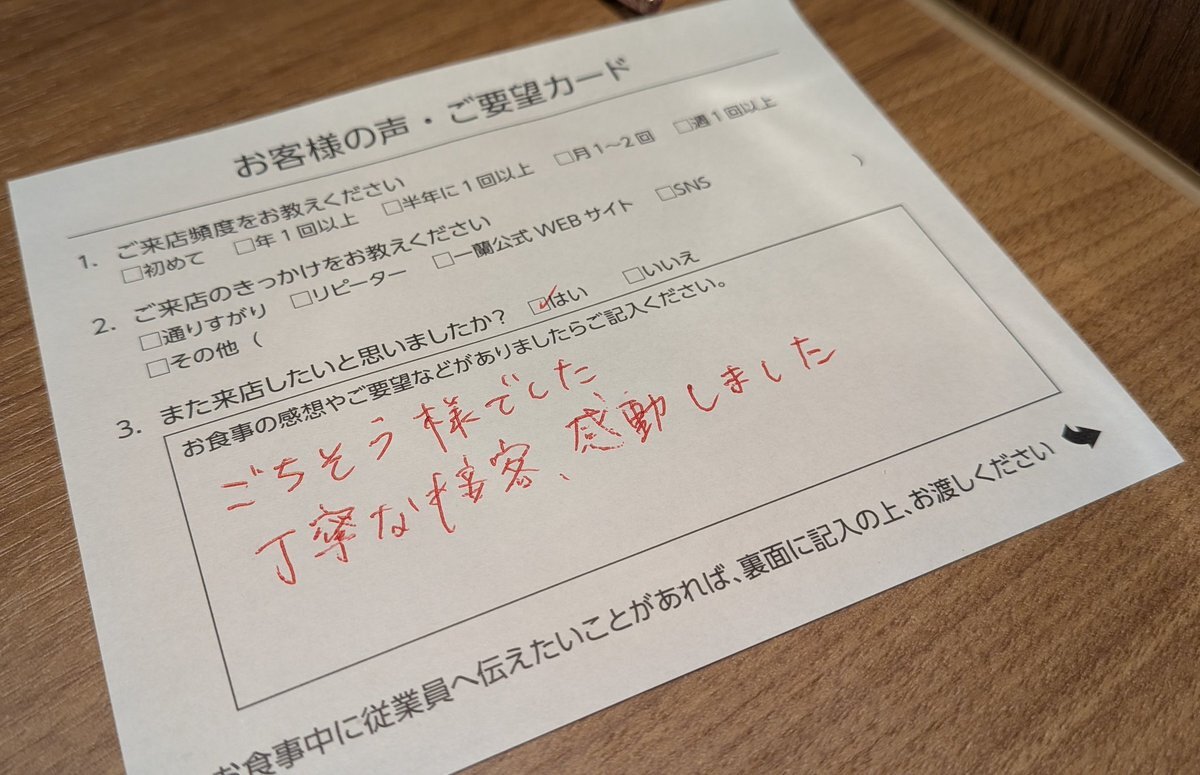 お客様の声・ご要望カード
1. ご来店頻度をお教えください
□初めて □年1回以上 □半年に1回以上 □月1～2回 □週1回以上
2. ご来店のきっかけをお教えください
□通りすがり □リピーター □一蘭公式WEBサイト □SNS
□その他 ( )
3. また来店したいと思いましたか? ☑はい □いいえ
お食事の感想やご要望などがありましたらご記入ください。
ごちそう様でした、
丁寧な接客、感動しました
お食事中に従業員へ伝えたいことがあれば、裏面に記入の上、お渡しください